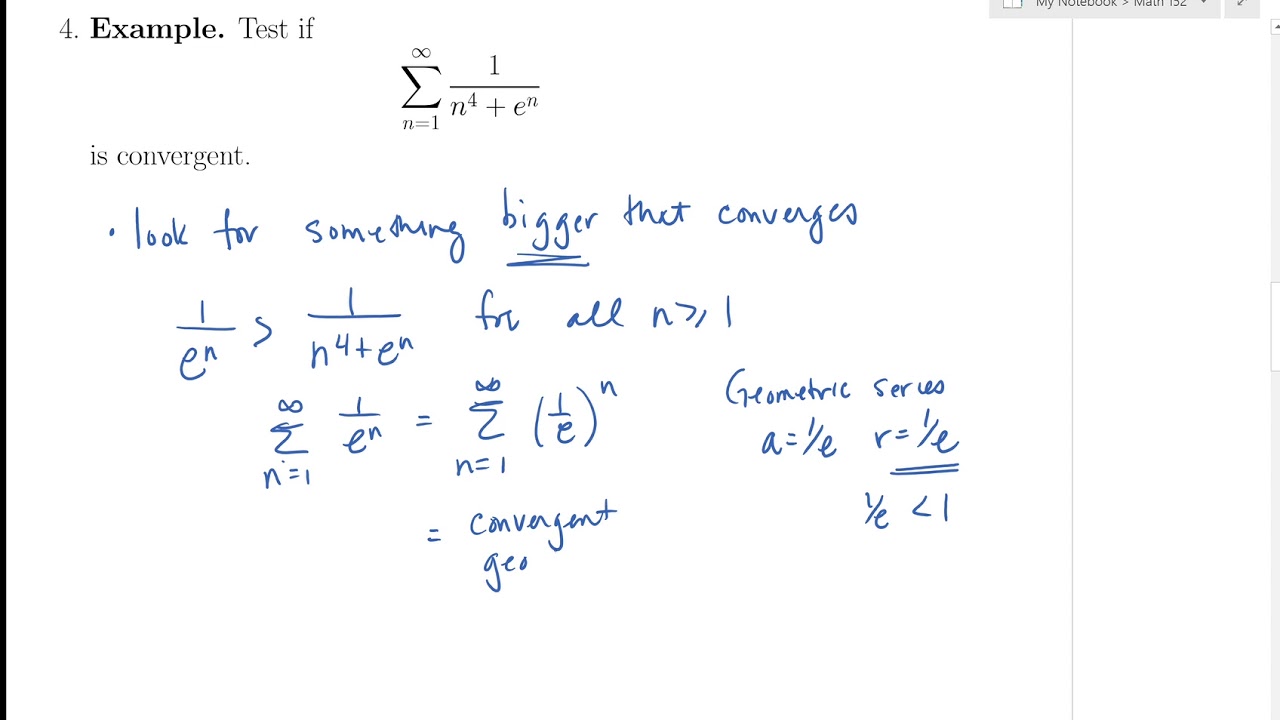 My Notebook > Math 152
4. Example. Test if
∞
∑ 1/(n⁴ + eⁿ)
n=1
is convergent.
• look for something bigger that converges
1/eⁿ > 1/(n⁴+eⁿ) for all n ≥ 1
∞ ∑ n=1 1/eⁿ = ∞ ∑ n=1 (1/e)ⁿ
Geometric series
a = 1/e r = 1/e
1/e < 1
= convergent
geo